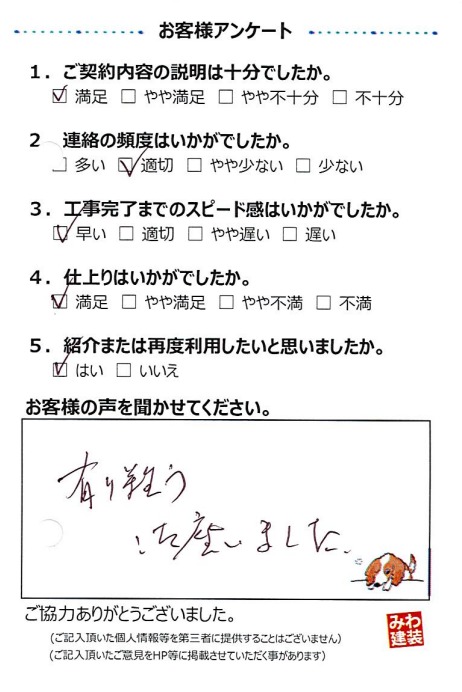 お客様アンケート
1. ご契約内容の説明は十分でしたか。
☑ 満足 □ やや満足 □ やや不十分 □ 不十分
2 連絡の頻度はいかがでしたか。
□ 多い ☑ 適切 □ やや少ない □ 少ない
3. 工事完了までのスピード感はいかがでしたか。
☑ 早い □ 適切 □ やや遅い □ 遅い
4. 仕上りはいかがでしたか。
☑ 満足 □ やや満足 □ やや不満 □ 不満
5. 紹介または再度利用したいと思いましたか。
☑ はい □ いいえ
お客様の声を聞かせてください。
有り難う
ご座いました。
ご協力ありがとうございました。
(ご記入頂いた個人情報等を第三者に提供することはございません)
(ご記入頂いたご意見をHP等に掲載させていただく事があります)
みわ
建装